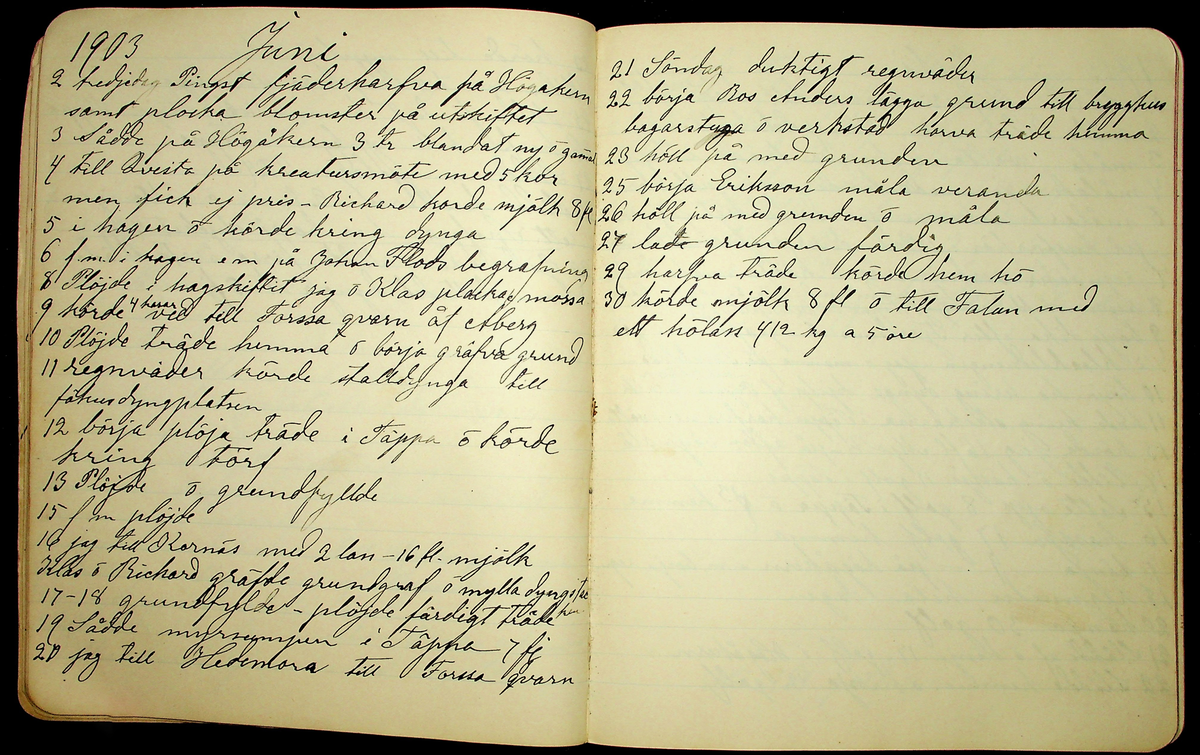 1903 Juni
2 tredjedag Pingst fjäderharfva på Högåkern
samt plocka blomster på utskiftet
3 Sådde på Högåkern 3 tr blandat ny o gamal
4 till Qvista på kreatursmöte med 5 kor
men fick ej pris - Richard körde mjölk 8 fl
5 i hagen o körde kring dynga
6 f.m. i hagen e m på Johan Flods begrafning
8 Plöjde i hagskiftet jag o Klas plockar mossa
9 körde 4 ved till Forssa qvarn åf Åberg
10 Plöjde träde hemma o börja gräfva grund
11 regnväder körde stalldynga till
fähusdyngplatsen
12 börja plöja träde i Täppa o körde
kring törf
13 Plöjde o grundfyllde
15 f m plöjde
16 jag till Kornäs med 2 lan - 16 fl. mjölk
Klas o Richard gräfde grundgraf o mylla
17-18 grundfylde - plöjde färdigt träde
19 Sådde myrsumpen i Täppa 7 fj
20 jag till Hedemora till Forssa qvarn
21 Söndag duktigt regnväder
22 börja Ros Anders lägga grund till brygghus
bagarstuga o verkstad harva träde hemma
23 höll på med grunden
25 börja Eriksson måla veranda
26 höll på med grunden o måla
27 lade grunden färdig
29 harfva träde körde hem hö
30 körde mjölk 8 fl o till Falan med
ett hölass 412 kg a 5 öre